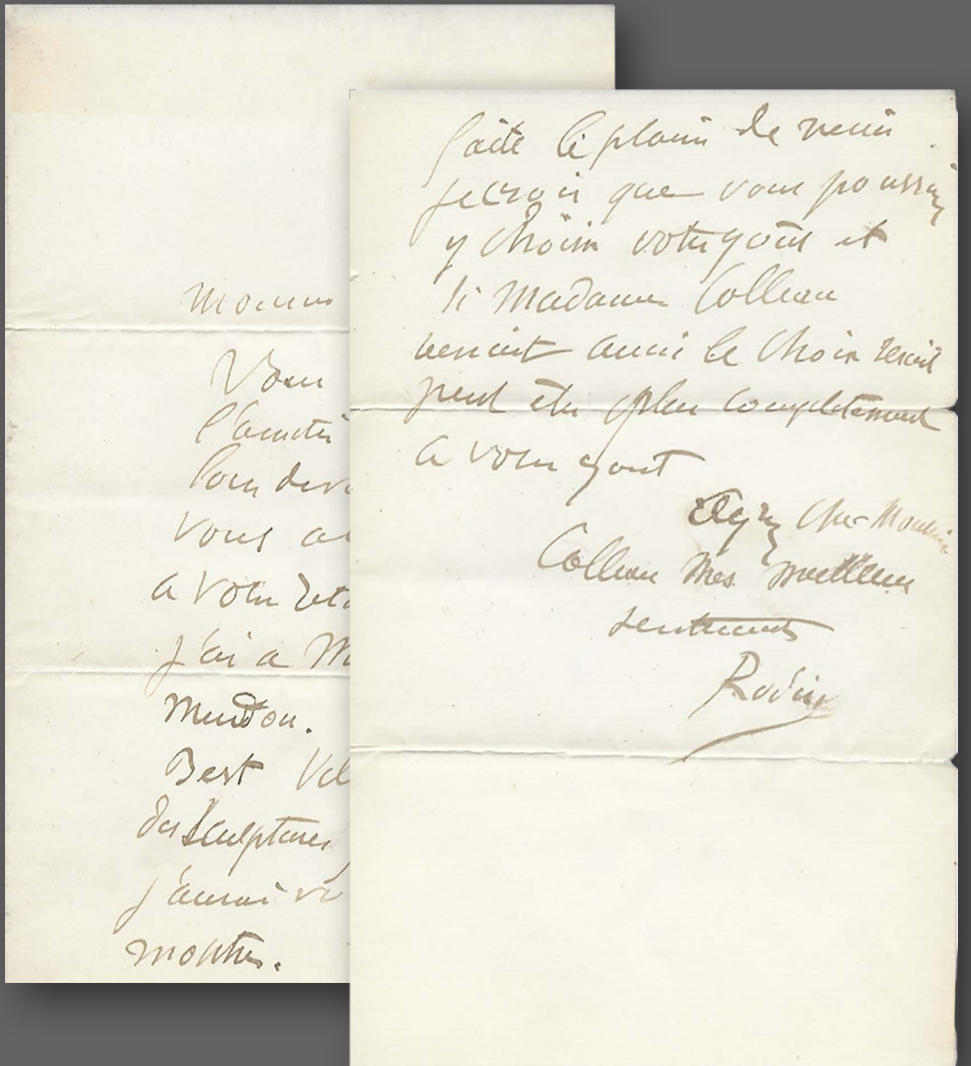 Monsieur
Vous
l'amitié
vous a
a votre
j'ai a M
Meudon.
Best Vel
des sculptures
j'aurai
montrer.
faite le plaisir de venir
je crois que vous pourriez
y choisir votre goût et
si Madame Collean
venait aussi le choix serait
peut être plus completement
a votre gout
Agréez cher Monsieur
Collean mes meilleurs
sentiments
Rodin